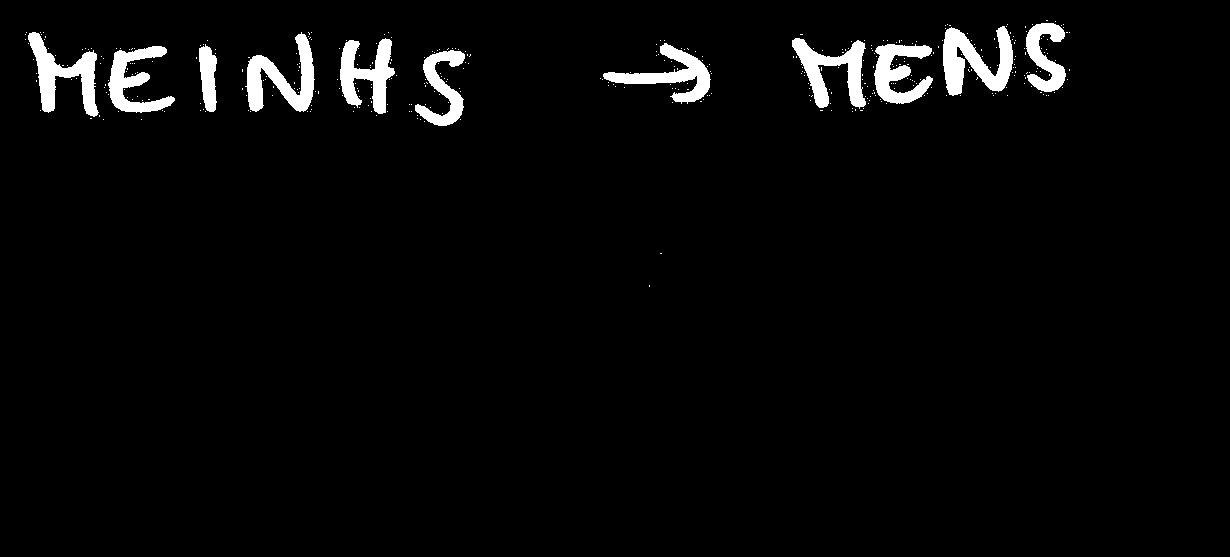 MEINHS → MENS